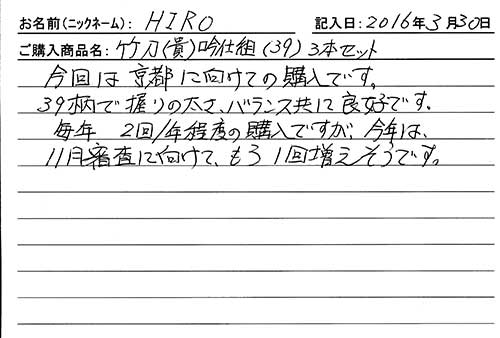 お名前(ニックネーム): HIRO 記入日: 2016年3月30日
ご購入商品名: 竹刀(貴)吟仕組(39)3本セット
今回は京都に向けての購入です。
39柄で握りの太さ、バランス共に良好です。
毎年 2回/年程度の購入ですが、今年は、
11月審査に向けて、もう1回増えそうです。